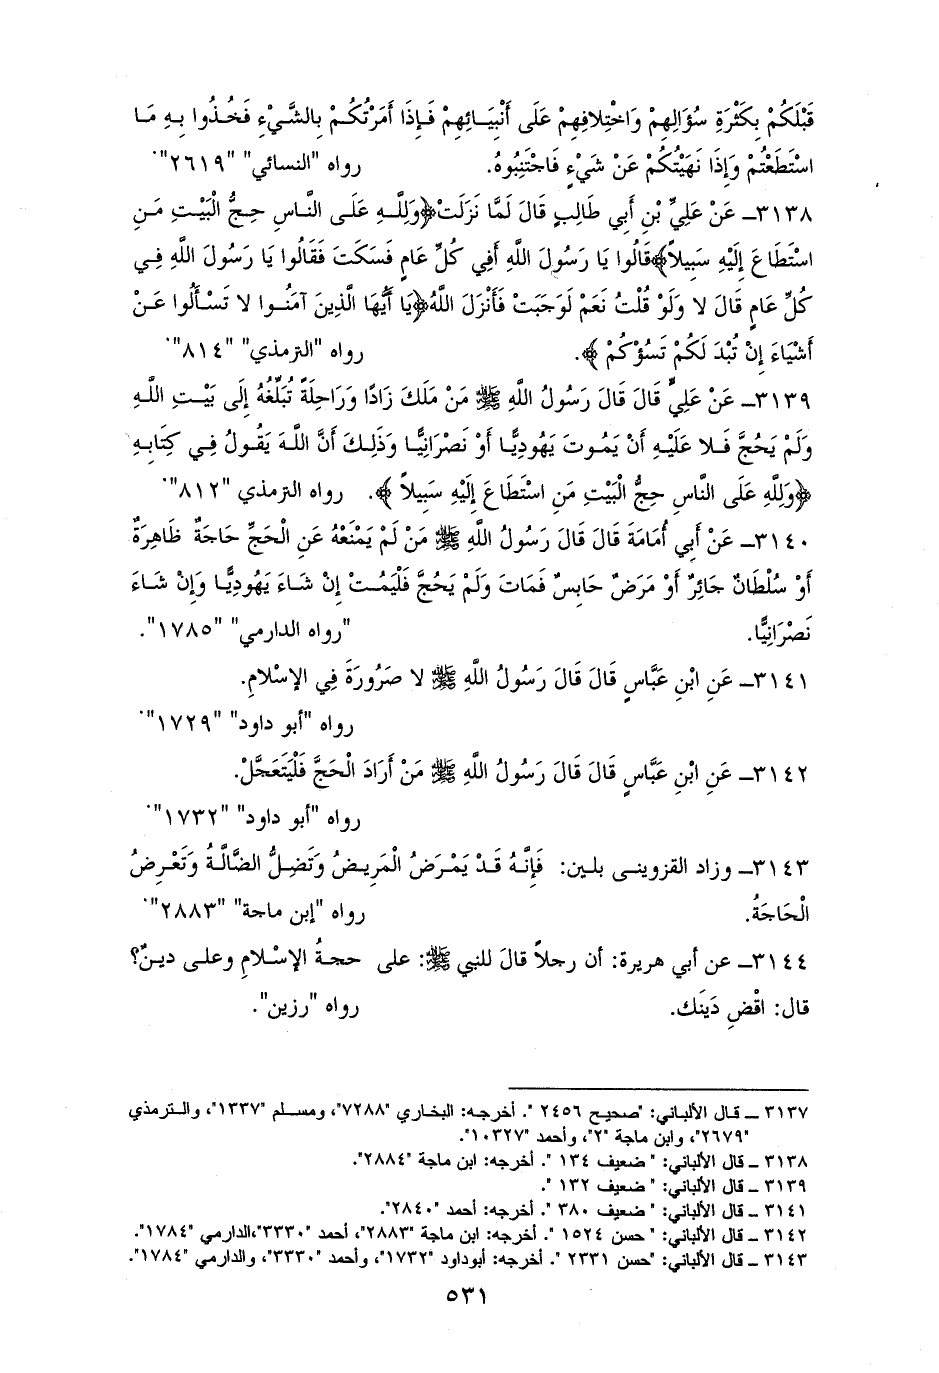 قَبْلَكُمْ بِكَثْرَةِ سُؤَالِهِمْ وَاخْتِلافِهِمْ عَلَى أَنْبِيَائِهِمْ فَإِذَا أَمَرْتُكُمْ بِالشَّيْءِ فَخُذُوا بِهِ مَا
اسْتَطَعْتُمْ وَإِذَا نَهَيْتُكُمْ عَنْ شَيْءٍ فَاجْتَنِبُوهُ. رواه "النسائي" "٢٦١٩".
٣١٣٨ـ عَنْ عَلِيِّ بْنِ أَبِي طَالِبٍ قَالَ لَمَّا نَزَلَتْ﴿وَلِلَّهِ عَلَى النَّاسِ حِجُّ الْبَيْتِ مَنِ
اسْتَطَاعَ إِلَيْهِ سَبِيلاً﴾قَالُوا يَا رَسُولَ اللَّهِ أَفِي كُلِّ عَامٍ فَسَكَتَ فَقَالُوا يَا رَسُولَ اللَّهِ فِي
كُلِّ عَامٍ قَالَ لا وَلَوْ قُلْتُ نَعَمْ لَوَجَبَتْ فَأَنْزَلَ اللَّهُ﴿يَا أَيُّهَا الَّذِينَ آمَنُوا لا تَسْأَلُوا عَنْ
أَشْيَاءَ إِنْ تُبْدَ لَكُمْ تَسُؤْكُمْ ﴾. رواه "الترمذي" "٨١٤".
٣١٣٩ـ عَنْ عَلِيٍّ قَالَ قَالَ رَسُولُ اللَّهِ ﷺ مَنْ مَلَكَ زَادًا وَرَاحِلَةً تُبَلِّغُهُ إِلَى بَيْتِ اللَّهِ
وَلَمْ يَحُجَّ فَلا عَلَيْهِ أَنْ يَمُوتَ يَهُودِيًّا أَوْ نَصْرَانِيًّا وَذَلِكَ أَنَّ اللَّهَ يَقُولُ فِي كِتَابِهِ
﴿وَلِلَّهِ عَلَى النَّاسِ حِجُّ الْبَيْتِ مَنِ اسْتَطَاعَ إِلَيْهِ سَبِيلاً ﴾. رواه الترمذي "٨١٢".
٣١٤٠ـ عَنْ أَبِي أُمَامَةَ قَالَ قَالَ رَسُولُ اللَّهِ ﷺ مَنْ لَمْ يَمْنَعْهُ عَنِ الْحَجِّ حَاجَةٌ ظَاهِرَةٌ
أَوْ سُلْطَانٌ جَائِرٌ أَوْ مَرَضٌ حَابِسٌ فَمَاتَ وَلَمْ يَحُجَّ فَلْيَمُتْ إِنْ شَاءَ يَهُودِيًّا وَإِنْ شَاءَ
نَصْرَانِيًّا. "رواه الدارمي" "١٧٨٥".
٣١٤١ـ عَنِ ابْنِ عَبَّاسٍ قَالَ قَالَ رَسُولُ اللَّهِ ﷺ لا صَرُورَةَ فِي الإِسْلامِ.
رواه "أبو داود" "١٧٢٩".
٣١٤٢ـ عَنِ ابْنِ عَبَّاسٍ قَالَ قَالَ رَسُولُ اللَّهِ ﷺ مَنْ أَرَادَ الْحَجَّ فَلْيَتَعَجَّلْ.
رواه "أبو داود" "١٧٣٢".
٣١٤٣ـ وزاد القزوينى بلين: فَإِنَّهُ قَدْ يَمْرَضُ الْمَرِيضُ وَتَضِلُّ الضَّالَّةُ وَتَعْرِضُ
الْحَاجَةُ. رواه "إبن ماجة" "٢٨٨٣".
٣١٤٤ـ عن أبي هريرة: أن رجلاً قالَ للنبي ﷺ: على حجةُ الإسْلامِ وعلى دينٌ؟
قال: اقْضِ دَينَك. رواه "رزين".
٣١٣٧ ـ قال الألباني: "صحيح ٢٤٥٦ ". أخرجه: البخاري "٧٢٨٨"، ومسلم "١٣٣٧"، والترمذي
"٢٦٧٩"، وابن ماجة "٢"، وأحمد "١٠٣٢٧".
٣١٣٨ ـ قال الألباني: " ضعيف ١٣٤ ". أخرجه: ابن ماجة "٢٨٨٤".
٣١٣٩ ـ قال الألباني: " ضعيف ١٣٢ ".
٣١٤١ ـ قال الألباني: " ضعيف ٣٨٠ ". أخرجه: أحمد "٢٨٤٠".
٣١٤٢ ـ قال الألباني: " حسن ١٥٢٤ ". أخرجه: ابن ماجة "٢٨٨٣"، أحمد "٣٣٣٠"،الدارمي "١٧٨٤".
٣١٤٣ ـ قال الألباني: "حسن ٢٣٣١ ". أخرجه: أبوداود "١٧٣٢"، وأحمد "٣٣٣٠"، والدارمي "١٧٨٤".
٥٣١